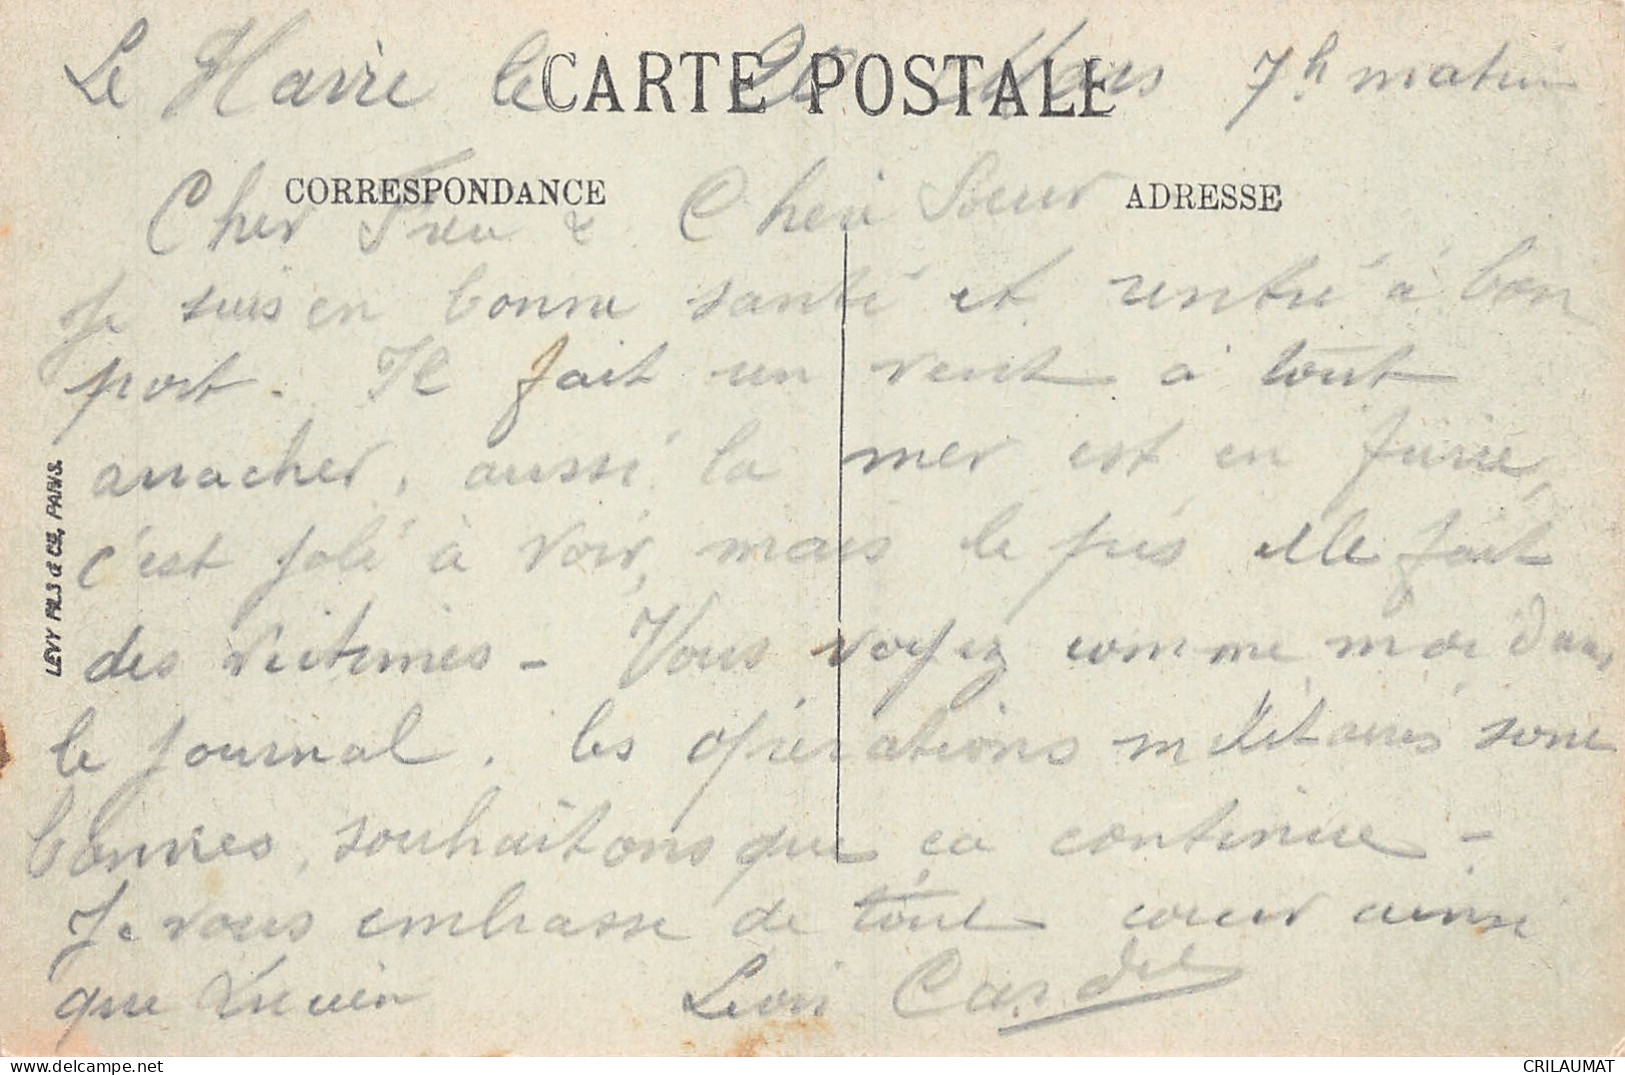 Le Havre le 20 Mars 7h matin
CARTE POSTALE
CORRESPONDANCE
ADRESSE
Cher Frère & Chère Sœur
Je suis en bonne santé et rentré à bon
port. Il fait un vent à tout
arracher, aussi la mer est en furie,
c'est joli à voir, mais le pis elle fait
des victimes - Vous voyez comme moi dans
le journal. les opérations militaires sont
bonnes, souhaitons que ça continue -
Je vous embrasse de tout cœur ainsi
que Lucien Léon
LEVY FILS & CIE, PARIS.
CRILAUMAT